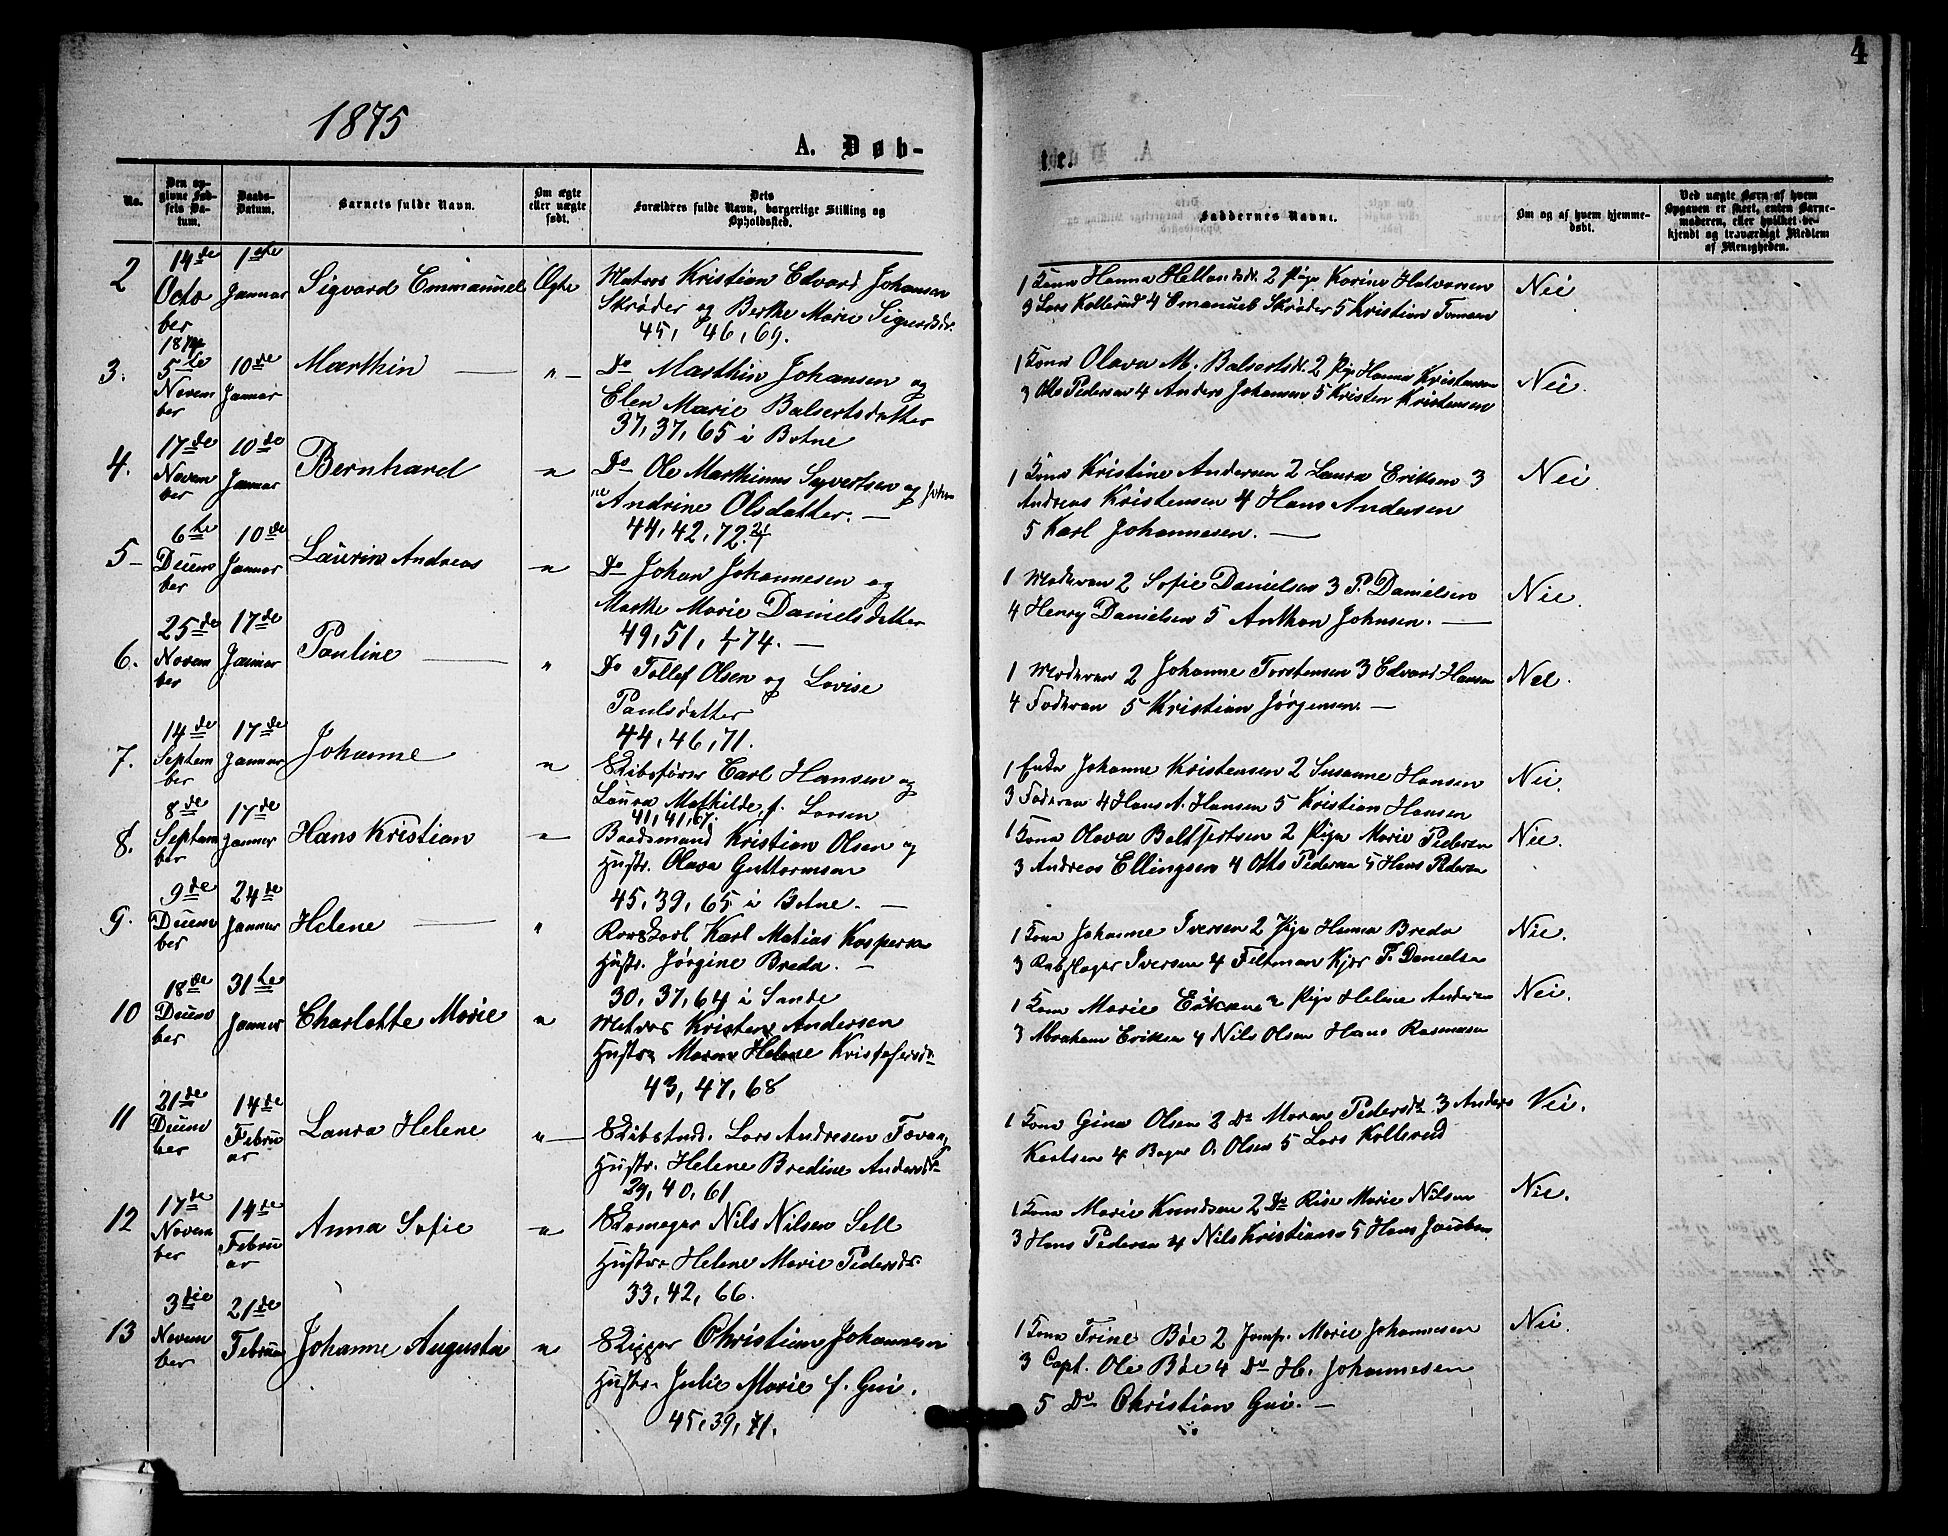 4
1875
A. Døb-
No.
Den op-
givne Fød-
sels Da-
tum.
Daabs-
Datum.
Barnets fulde Navn.
Om ægte
eller uægte
født.
Dets
Forældres fulde Navn, borgerlige Stilling og
Opholdssted.
Faddernes Navne.
Om og af hvem hjemme-
døbt.
Ved uægte Børn af hvem
Opgaven er skeet, enten Barne-
moderen, eller hvilket be-
kjendt og troværdigt Medlem
af Menigheden.
2
14de
Octo
ber
1874
1ste
Januar
Sigvard Emmanuel
Ægte
Matros Kristian Edvard Johansen
Skrøder og Berthe Marie
45, 46, 69.
1 Kona Hanna 2 Pige Karine Halvorsen
3 Lars Kollerud 4 Emanuel Skrøder 5 Kristian
Nei
3.
5te
Novem
ber
10de
Januar
Marthin —
" —
Do Marthin Johansen og
Elen Marie Balsertsdatter
37, 37, 65 i Botne
1 Kona Olava M. Balsertsdt 2 Pige Hanna Kristensen
3 Otto Pedersen 4 Anders Johansen 5 Kristen Kristensen
Nei.
4.
17de
Novem
ber
10de
Januar
Bernhard
"
Do Ole Marthinus Syvertsen og
Andrine Olsdatter. —
44, 42, 72.
1 Kona Kristine Andersen 2 Laura Eriksen 3
Andreas Kristensen 4 Hans Andersen
5 Karl Johannesen. —
Nei.
5 —
6te
Decem
ber
10de
Januar
Laurin Andreas
"
Do Johan Johannesen og
Marthe Marie Danielsdatter
49, 51, 74. —
1 Moderen 2 Sofie Danielsen 3 P. Danielsen
4 Henry Danielsen 5 Anthon Johnsen. —
Nei.
6.
25de
Novem
ber
17de
Januar
Pauline —
"
Do Tollef Olsen og Lovise
Paulsdatter
44, 46, 71.
1 Moderen 2 Johanne Torstensen 3 Edvard Hansen
4 Faderen 5 Kristian Jørgensen. —
Nei.
7.
14de
Septem
ber
17de
Januar
Johanne
"
Skibsfører Carl Hansen og
Laura Mathilde f. Larsen
41, 41, 67.
1 Enke Johanne Kristensen 2 Susanne Hansen
3 Faderen 4 Hans A. Hansen 5 Kristian Hansen
Nei.
8.
8de
Septem
ber
17de
Januar
Hans Kristian
"
Baadsmand Kristian Olsen og
Hustr. Olava Guttormsen
45, 39, 65 i Botne. —
1 Kona Olava Baltsertsen 2 Pige Marie Pedersen
3 Andreas Ellingsen 4 Otto Pedersen 5 Hans Pedersen
Nei.
9.
9de
Decem
ber
24de
Januar
Helene —
"
Karl Matias Kaspersen
Hustr. Jørgine Breda. —
30, 37, 64 i Sande
1 Kona Johanne Iversen 2 Pige Hanna Breda
3 Iversen 4 Feltman Kjær P. Danielsen
Nei.
10
18de
Decem
ber
31te
Januar
Charlotte Marie
"
Matros Kristen Andersen
Hustru Maren Helene
43, 47, 68
1 Kona Marie 2 Pige Helene Andersen
3 Abraham Eriksen 4 Nils Olsen Hans Rasmussen
Nei.
11
21de
Decem
ber
14de
Febru
ar
Laura Helene
" —
Lars Andresen
Hustr. Helene Bredine
29, 40, 61
1 Kona Gina Olsen 2 Do Maren Pedersdt 3 Anders
Karlsen 4 O. Olsen 5 Lars Kollerud
Nei.
12
17de
Novem
ber
14de
Febru
ar
Anna Sofie
"
Skomager Nils Nilsen
Hustru Helene Marie Pedersdr.
33, 42, 66.
1 Kona Marie Knudsen 2 Do Marie Nilsen
3 Hans Pedersen 4 Nils Kristiansen 5 Hans Jacobsen
Nei.
13
3die
Novem
ber
21de
Februar
Johanne Augusta
"
Skipper Christian Johannesen
Hustru Julie Marie f. Gui.
45, 39, 71.
1 Kona Trine Bøe 2 Jomf. Marie Johannesen
3 Capt. Ole Bøe 4 Do H. Johannesen
5 Do Christian Gui. —
Nei.